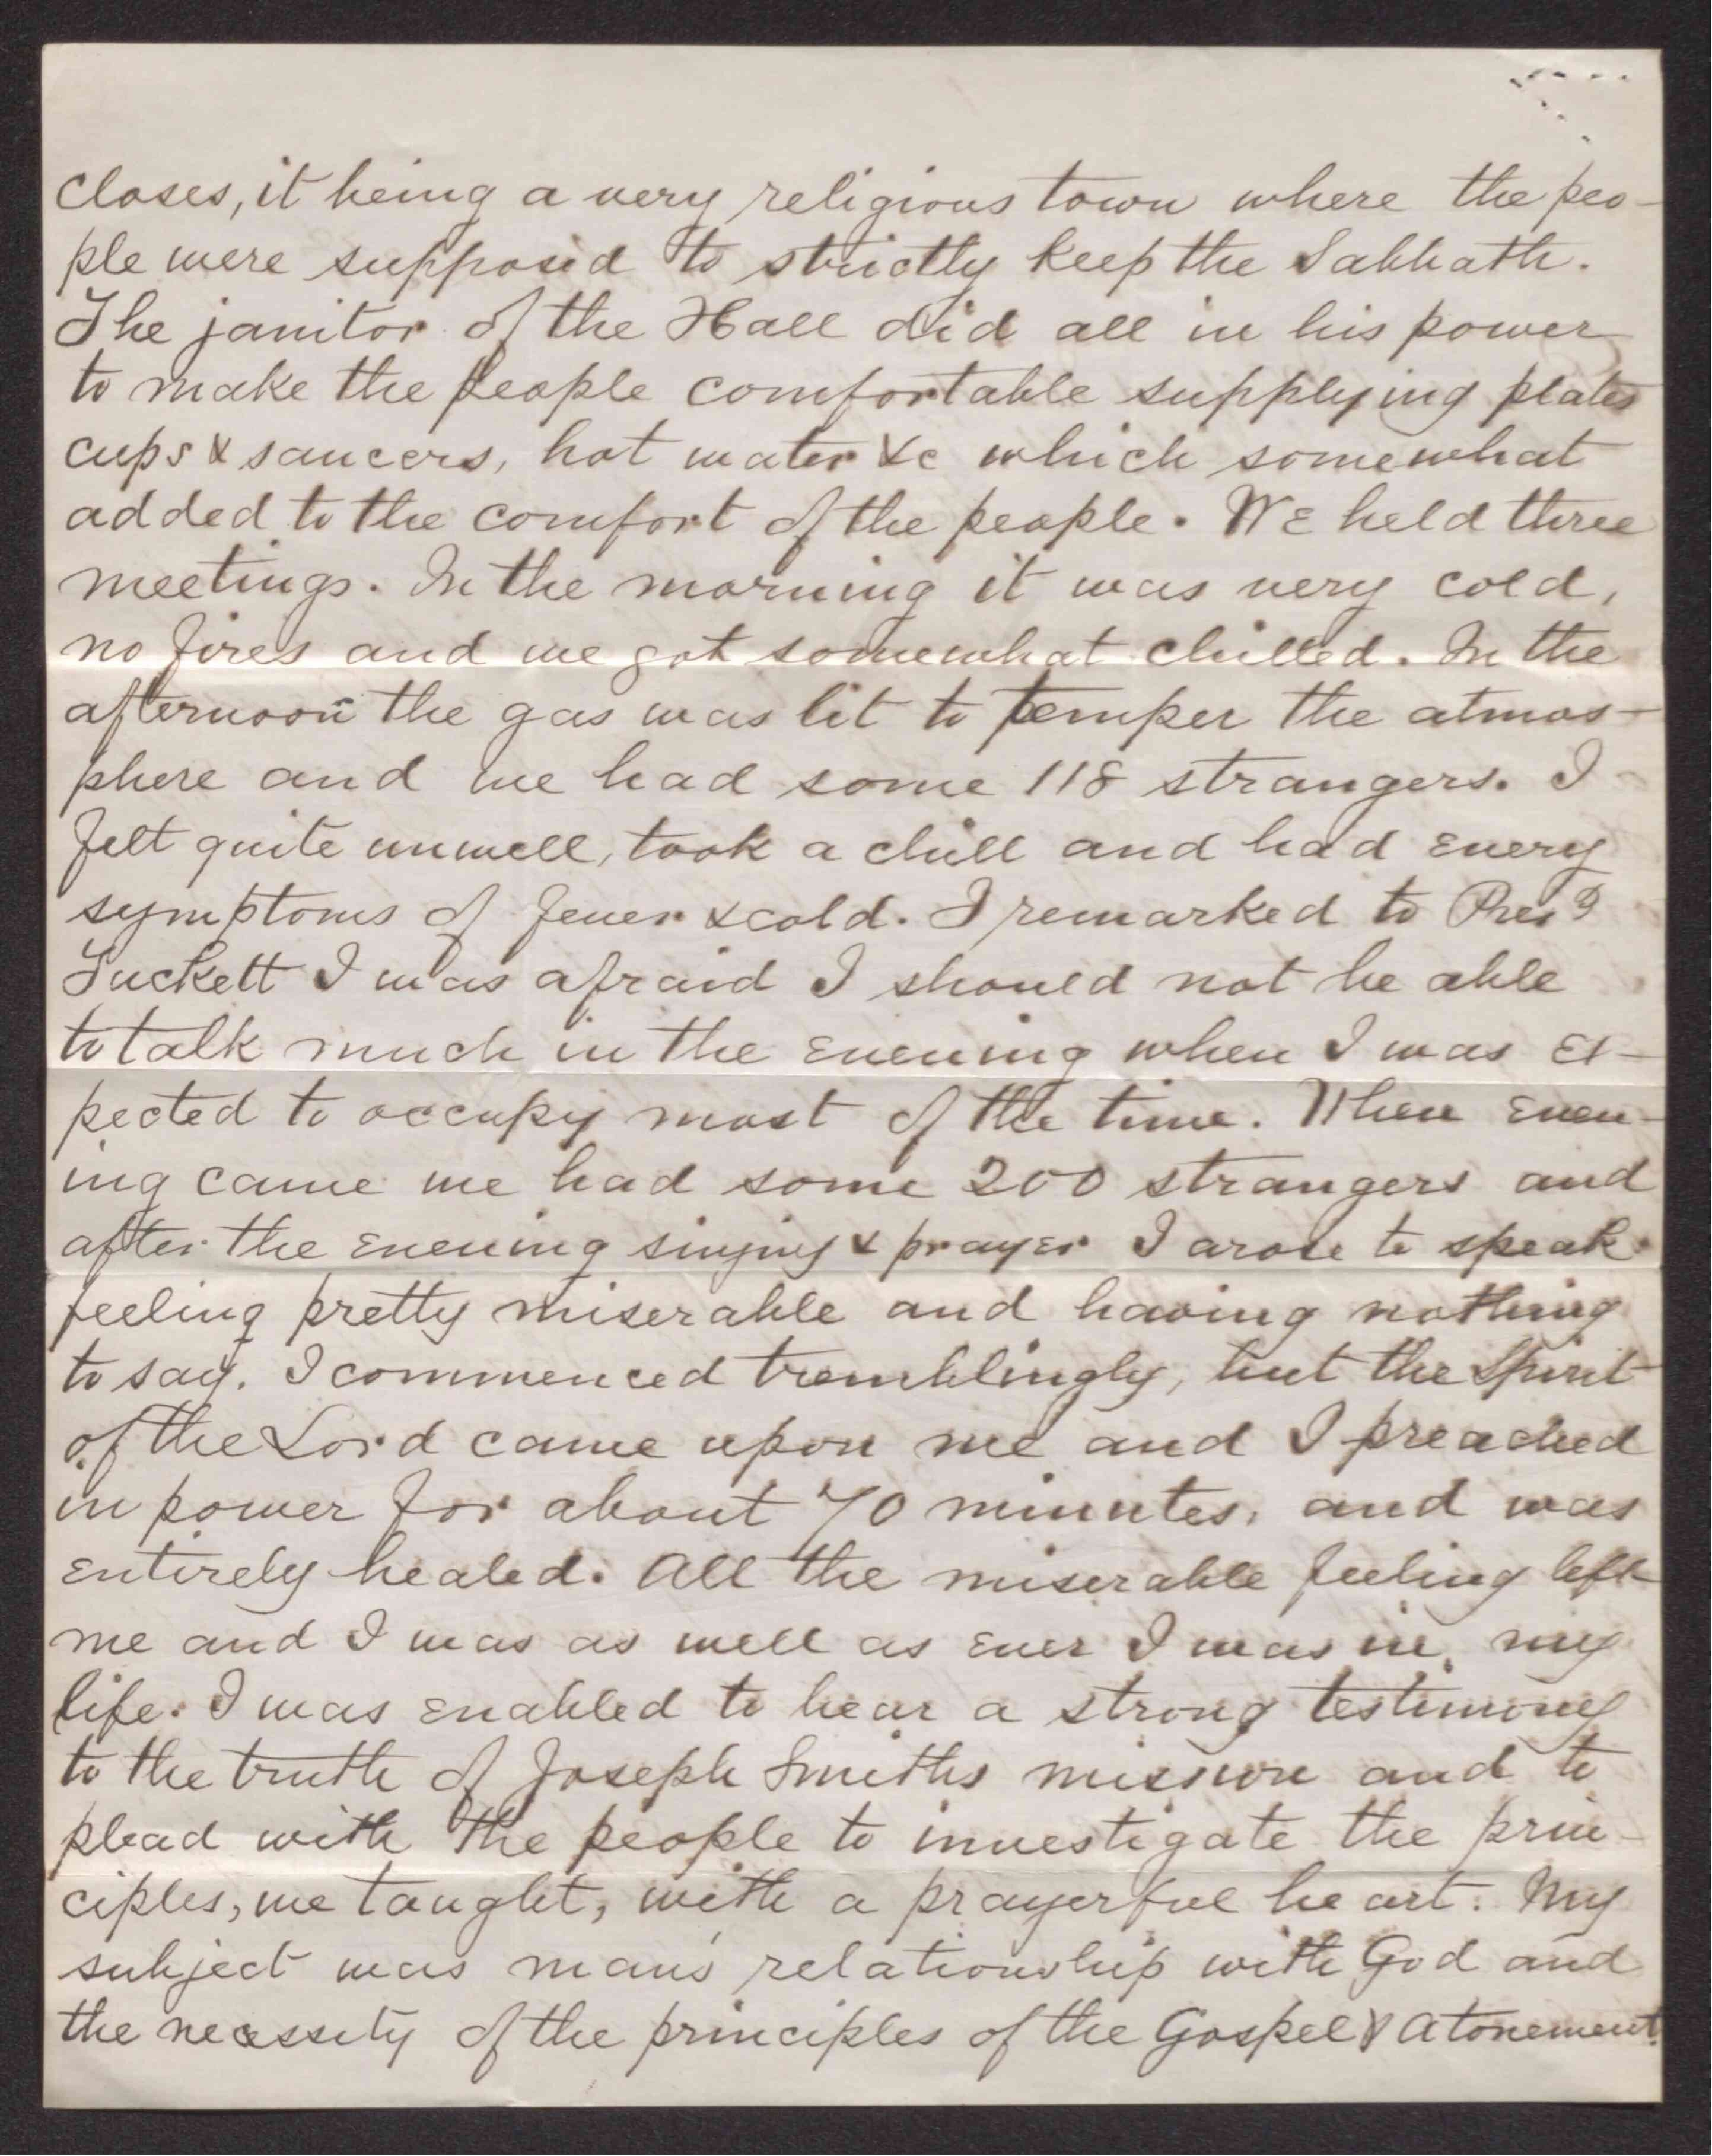 closes, it being a very religious town where the peo-
ple were supposed to strictly keep the Sabbath.
The janitor of the Hall did all in his power
to make the people comfortable supplying plates
cups & saucers, hot water &c which somewhat
added to the comfort of the people. We held three
meetings. In the morning it was very cold,
no fires and we got somewhat chilled. In the
afternoon the gas was lit to temper the atmos-
phere and we had some 118 strangers. I
felt quite unwell, took a chill and had every
symptoms of fever & cold. I remarked to Pres
Tuckett I was afraid I should not be able
to talk much in the evening when I was ex-
pected to occupy most of the time. When even-
ing came we had some 200 strangers and
after the evening singing & prayer I arose to speak
feeling pretty miserable and having nothing
to say. I commenced tremblingly, but the Spirit
of the Lord came upon me and I preached
in power for about 70 minutes, and was
entirely healed. All the miserable feeling left
me and I was as well as ever I was in my
life. I was enabled to bear a strong testimony
to the truth of Joseph Smiths mission and to
plead with the people to investigate the prin-
ciples, we taught, with a prayerful heart. My
subject was man's relationship with God and
the necessity of the principles of the Gospel & Atonement.